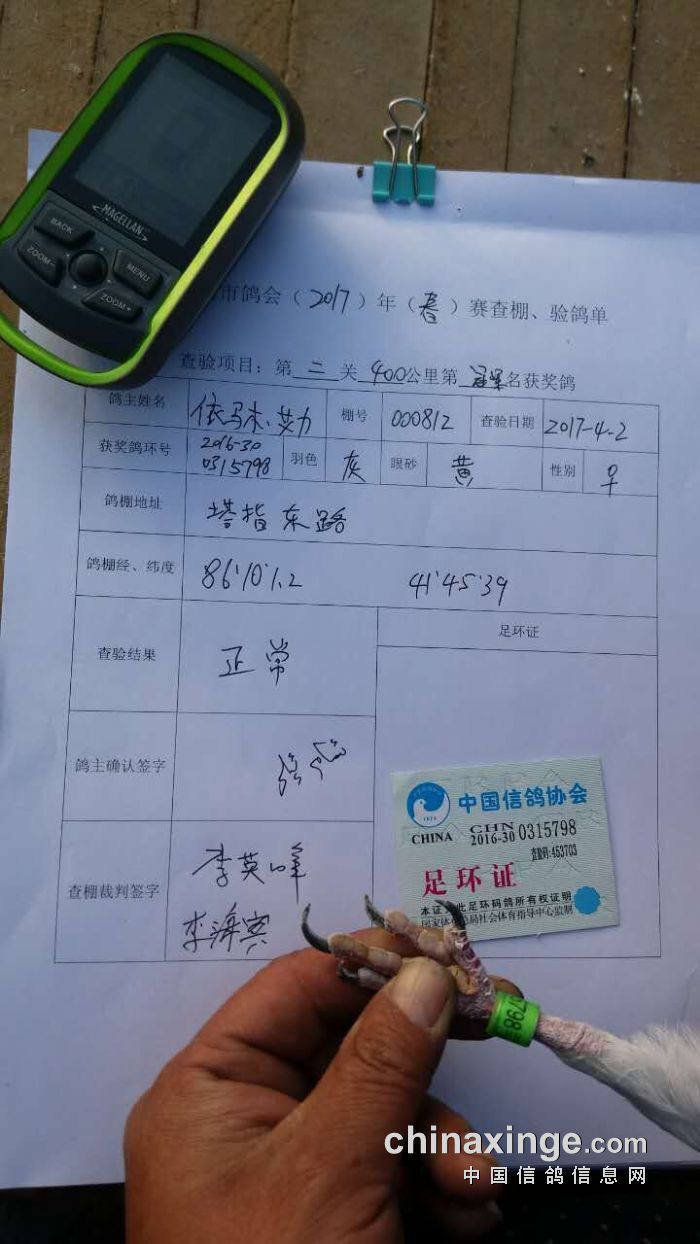 MAGELLAN
BACK
MENU
ZOOM-
ZOOM+
市鸽会（2017）年（春）赛查棚、验鸽单
查验项目：第 二 关 400公里第 冠军 名获奖鸽
鸽主姓名 依马木·艾力 棚号 000812 查验日期 2017-4-2
获奖鸽环号 2016-30 0315798 羽色 灰 眼砂 黄 性别 ♀
鸽棚地址 塔指东路
鸽棚经、纬度 86'10'1.2 41'45'39
查验结果 正常
足环证
鸽主确认签字
查棚裁判签字 李英峰
李海宾
中国信鸽协会
CHINA CHN 2016-30 0315798
查验码:453703
足环证
本证为此足环码鸽所有权证明
国家体育总局社会体育指导中心监制
798
chinaxinge.com
中国信鸽信息网